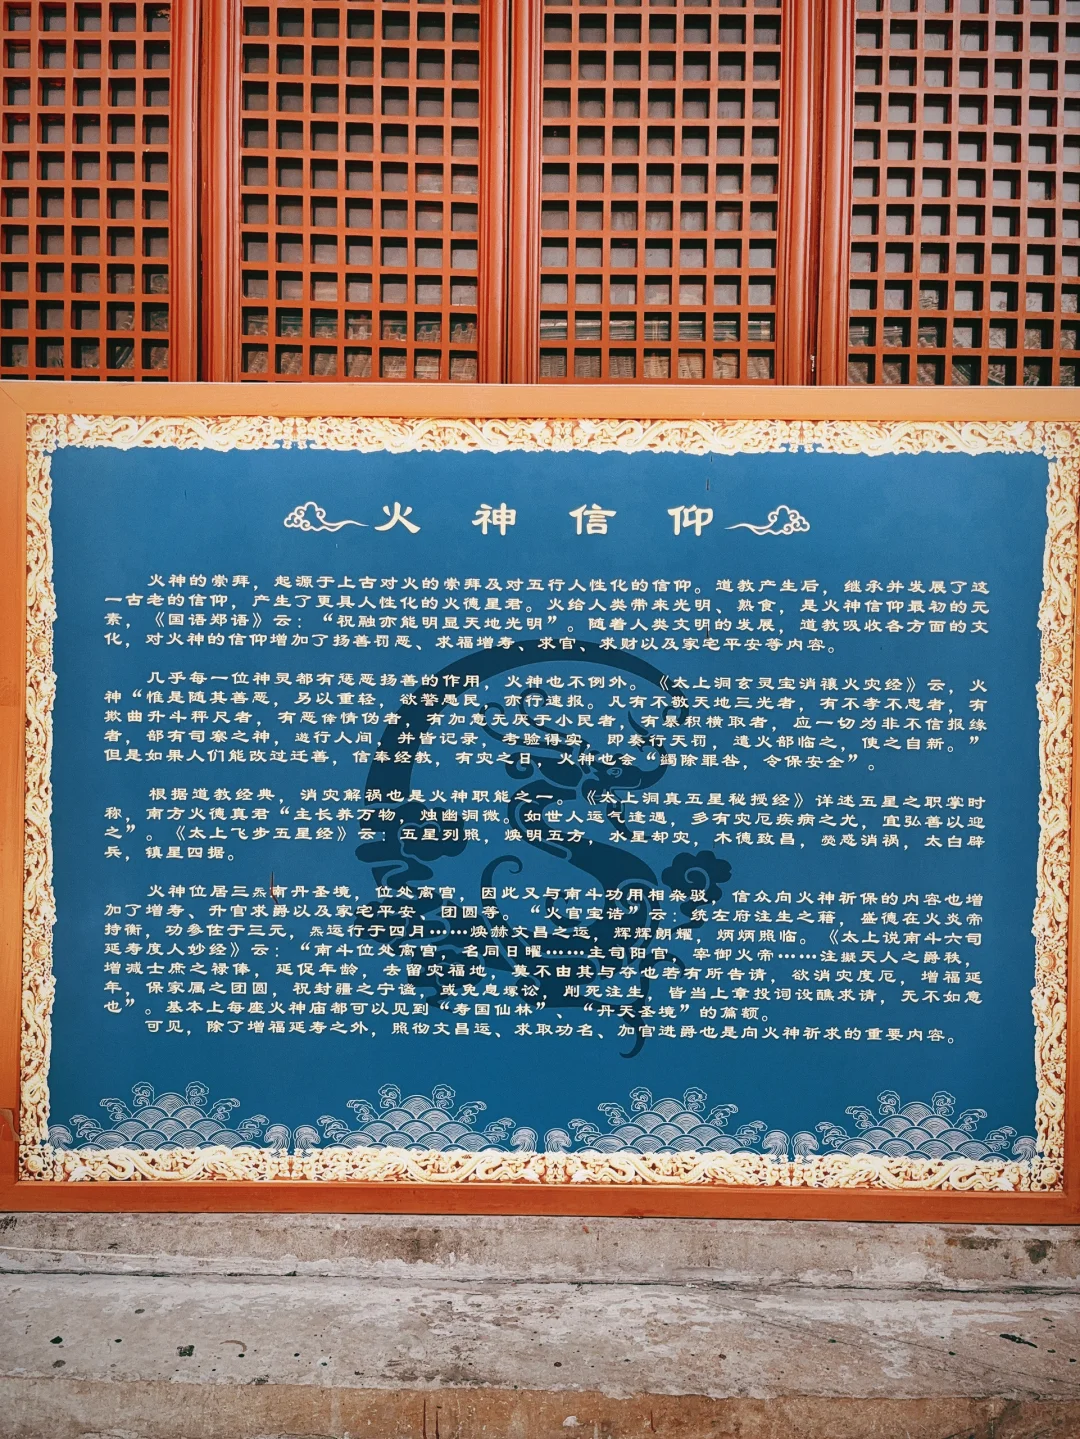 火神信仰
火神的崇拜，起源于上古对火的崇拜及对五行人性化的信仰。道教产生后，继承并发展了这
一古老的信仰，产生了更具人性化的火德星君。火给人类带来光明、熟食，是火神信仰最初的元
素，《国语郑语》云：“祝融亦能明显天地光明”。随着人类文明的发展，道教吸收各方面的文
化，对火神的信仰增加了扬善罚恶、求福增寿、求官、求财以及家宅平安等内容。
几乎每一位神灵都有惩恶扬善的作用，火神也不例外。《太上洞玄灵宝消禳火灾经》云，火
神“惟是随其善恶，另以重轻，欲警愚民，亦行速报。凡有不敬天地三光者，有不孝不忠者，有
欺曲升斗秤尺者，有恶倖情伪者，有加意无厌于小民者，有暴积横取者，应一切为非不信报缘
者，部有司察之神，遊行人间，并皆记录，考验得实，即奏行天罚，遣火部临之，使之自新。”
但是如果人们能改过迁善，信奉经教，有灾之日，火神也会“蠲除罪咎，令保安全”。
根据道教经典，消灾解祸也是火神职能之一。《太上洞真五星秘授经》详述五星之职掌时
称，南方火德真君“主长养万物，烛幽洞微。如世人运气逢遇，多有灾厄疾病之尤，宜弘善以迎
之”。《太上飞步五星经》云：五星列照，焕明五方，水星却灾，木德致昌，荧惑消祸，太白辟
兵，镇星四据。
火神位居三炁南丹圣境，位处离宫，因此又与南斗功用相杂驳，信众向火神祈保的内容也增
加了增寿、升官求爵以及家宅平安、团圆等。“火官宝诰”云：统左府注生之籍，盛德在火炎帝
持衡，功参佐于三元，炁运行于四月……焕赫文昌之运，辉辉朗耀，炳炳照临。《太上说南斗六司
延寿度人妙经》云：“南斗位处离宫，名同日曜……主司阳官，宰御火帝……注擬天人之爵秩，
增减士庶之禄俸，延促年龄，去留灾福地，莫不由其与夺也若有所告请，欲消灾度厄，增福延
年，保家属之团圆，祝封疆之宁谧，或免息塚讼，削死注生，皆当上章投词设醮求请，无不如意
也”。基本上每座火神庙都可以见到“寿国仙林”、“丹天圣境”的篇额。
可见，除了增福延寿之外，照彻文昌运、求取功名、加官进爵也是向火神祈求的重要内容。